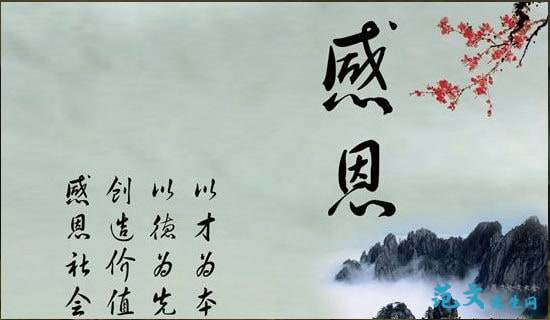 感恩
以才为本
以德为先
创造价值
感恩社会
范文先生网